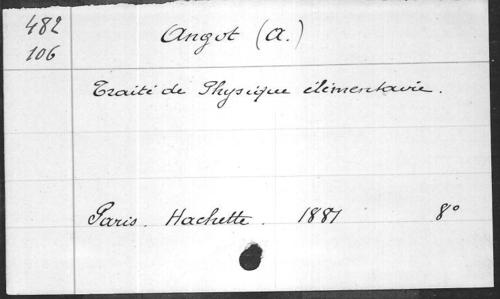 482
106
Angot (A.)
Traité de Physique élémentaire.
Paris. Hachette. 1881 8°